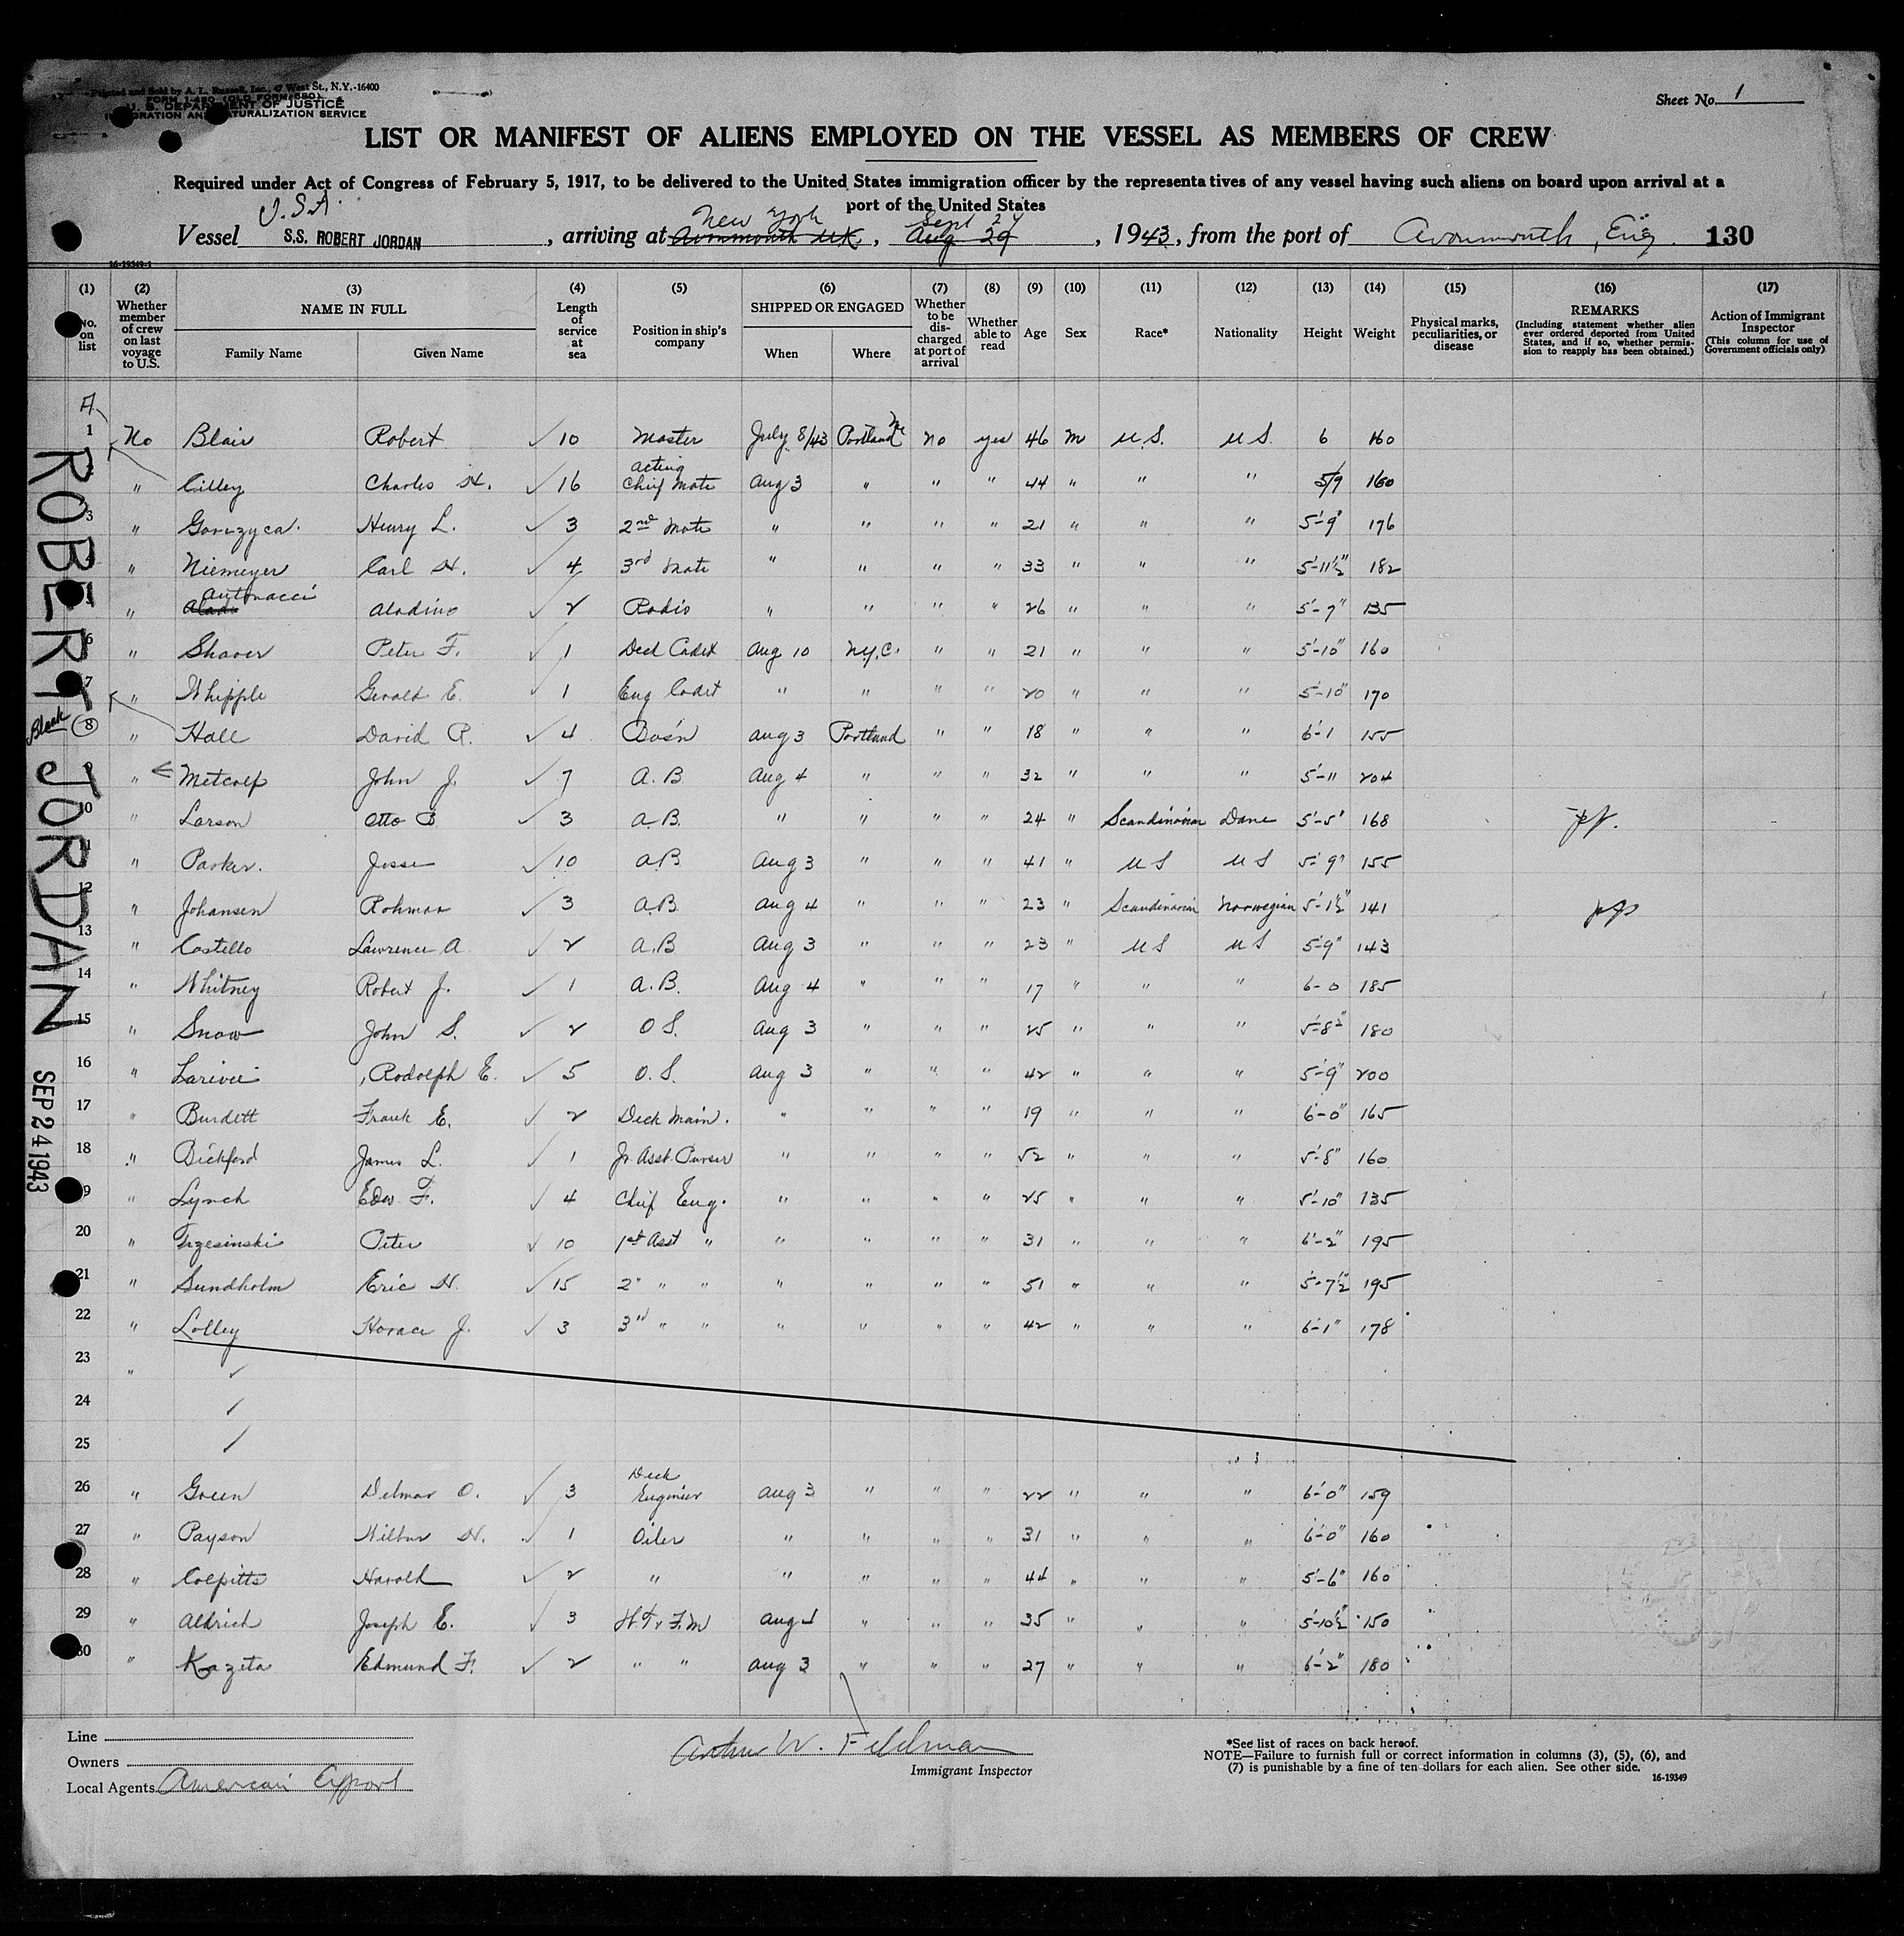 Printed and Sold by A. L. Russell, Inc., 47 West St., N.Y.-16400
FORM I-480 (OLD FORM 680)
U. S. DEPARTMENT OF JUSTICE
IMMIGRATION AND NATURALIZATION SERVICE
Sheet No. 1
LIST OR MANIFEST OF ALIENS EMPLOYED ON THE VESSEL AS MEMBERS OF CREW
Required under Act of Congress of February 5, 1917, to be delivered to the United States immigration officer by the representatives of any vessel having such aliens on board upon arrival at a
port of the United States
U.S.A. New York Sept 24
Vessel S.S. ROBERT JORDAN, arriving at Avonmouth UK, Aug 29, 1943, from the port of Avonmouth, Eng. 130
16-19349-1
(1) (2) (3) (4) (5) (6) (7) (8) (9) (10) (11) (12) (13) (14) (15) (16) (17)
No. on list
Whether member of crew on last voyage to U.S.
NAME IN FULL
Family Name Given Name
Length of service at sea
Position in ship's company
SHIPPED OR ENGAGED
When Where
Whether to be discharged at port of arrival
Whether able to read
Age Sex Race* Nationality Height Weight
Physical marks, peculiarities, or disease
REMARKS
(Including statement whether alien ever ordered deported from United States, and if so, whether permission to reapply has been obtained.)
Action of Immigrant Inspector
(This column for use of Government officials only)
1 No Blair Robert ✓ 10 Master July 8/43 Portland Me no yes 46 m U.S. U.S. 6 160
" Cilley Charles H. ✓ 16 acting Chief Mate Aug 3 " " " 44 " " " 5/9 160
3 " Gorczyca Henry L. ✓ 3 2nd Mate " " " " 21 " " " 5'-9" 176
" Niemeyer Carl H. ✓ 4 3rd Mate " " " " 33 " " " 5'-11½" 182
" Antonacci Aladino ✓ 2 Radio " " " " 26 " " " 5'-7" 135
6 " Shaver Peter F. ✓ 1 Deck Cadet Aug 10 N.Y.C. " " 21 " " " 5'-10" 160
7 " Whipple Gerald E. ✓ 1 Eng Cadet " " " " 20 " " " 5'-10" 170
Black 8 " Hall David R. ✓ 4 Bos'n Aug 3 Portland " " 18 " " " 6'-1 155
" Metcalf John J. ✓ 7 A.B. Aug 4 " " " 32 " " " 5'-11 204
10 " Larson Otto B ✓ 3 A.B. " " " " 24 " Scandinavian Dane 5'-5" 168
11 " Parker. Jesse ✓ 10 A.B Aug 3 " " " 41 " U S U S 5'-9" 155
12 " Johansen ✓ 3 A.B. Aug 4 " " " 23 " Scandinavian Norwegian 5'-1½" 141
13 " Costello Lawrence A ✓ 2 A.B Aug 3 " " " 23 " U S U S 5'-9" 143
14 " Whitney Robert J. ✓ 1 A.B. Aug 4 " " " 17 " " " 6-0 185
15 " Snow John S. ✓ 2 O S. Aug 3 " " " 25 " " " 5'-8½" 180
16 " Lariviei Rodolph E. ✓ 5 O. S. Aug 3 " " " 42 " " " 5'-9" 200
17 " Burdett Frank E. ✓ 2 Deck Main. " " " " 19 " " " 6'-0" 165
18 " Bickford James L. ✓ 1 Jr. Asst. Purser " " " " 52 " " " 5'-8" 160
9 " Lynch Edw. F. ✓ 4 Chief Eng. " " " " 25 " " " 5'-10" 135
20 " Trzesinski Peter ✓ 10 1st Asst " " " " " 31 " " " 6'-2" 195
21 " Sundholm Eric H. ✓ 15 2" " " " " " " 51 " " " 5'-7½" 195
22 " Lolley Horace J. ✓ 3 3rd " " " " " " 42 " " " 6'-1" 178
23 " ✓
24 ✓
25 ✓
26 " Green Delmar O. ✓ 3 Deck Engineer Aug 3 " " " 22 " " " 6'-0" 159
27 " Payson Wilbur H. ✓ 1 Oiler " " " " 31 " " " 6'-0" 160
28 " Colpitts Harold ✓ 2 " " " " " 44 " " " 5'-6" 160
29 " Aldrich Joseph E. ✓ 3 Aug 4 " " " 35 " " " 5'-10½" 150
30 " Kazeta Edmund F. ✓ 2 " " Aug 3 " " " 27 " " " 6'-2" 180
ROBERT JORDAN
SEP 24 1943
Line
Owners
Local Agents American Export
Arthur W. Feldman
Immigrant Inspector
*See list of races on back hereof.
NOTE—Failure to furnish full or correct information in columns (3), (5), (6), and
(7) is punishable by a fine of ten dollars for each alien. See other side.
16-19349